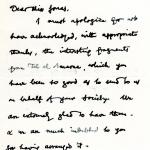 Dear Miss Jonas,
I must apologize for not
have acknowledged, with appropriate
thanks, the interesting fragments
from Tel el Amarna, which you
have been so good as to send to us
on behalf of your Society. We
are extremely glad to have them.
& we are much indebted to you
for having arranged it.